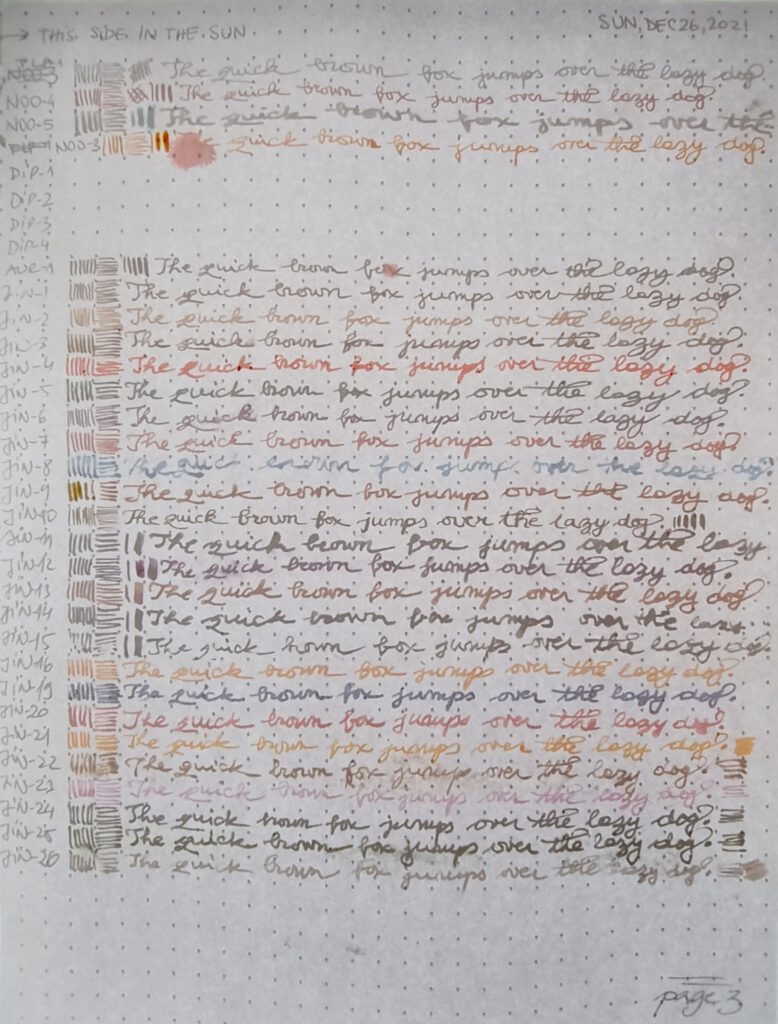 → THIS SIDE IN THE SUN
SUN, DEC 26, 2021
The quick brown fox jumps over the lazy dog.
NOO-4 The quick brown fox jumps over the lazy dog.
NOO-5 The quick brown fox jumps over the
NOO-3 quick brown fox jumps over the lazy dog.
DIP-1
DIP-2
DIP-3
DIP-4
AUR-1 The quick brown fox jumps over the lazy dog.
JIN-1 The quick brown fox jumps over the lazy dog.
JIN-2 The quick brown fox jumps over the lazy dog.
JIN-3 The quick brown fox jumps over the lazy dog.
JIN-4 The quick brown fox jumps over the lazy dog.
JIN-5 The quick brown fox jumps over the lazy dog.
JIN-6 The quick brown fox jumps over the lazy dog.
JIN-7 The quick brown fox jumps over the lazy dog.
JIN-8 The quick fox jump over the lazy dog.
JIN-9 The quick brown fox jumps over the lazy dog.
JIN-10 The quick brown fox jumps over the lazy dog.
JIN-11 The quick brown fox jumps over the lazy
JIN-12 The quick brown fox jumps over the lazy dog.
JIN-13 The quick brown fox jumps over the lazy dog.
JIN-14 The quick brown fox jumps over the lazy..
JIN-15 The quick brown fox jumps over the lazy dog.
JIN-16 The quick brown fox jumps over the lazy dog.
JIN-19 The quick brown fox jumps over the lazy dog.
JIN-20 The quick brown fox jumps over the lazy dog.
JIN-21 The quick brown fox jumps over the lazy dog.
JIN-22 The quick brown fox jumps over the lazy dog.
JIN-23 The quick brown fox jumps over the lazy dog.
JIN-24 The quick brown fox jumps over the lazy dog.
JIN-25 The quick brown fox jumps over the lazy dog.
JIN-26 The quick brown fox jumps over the lazy dog.
page 3